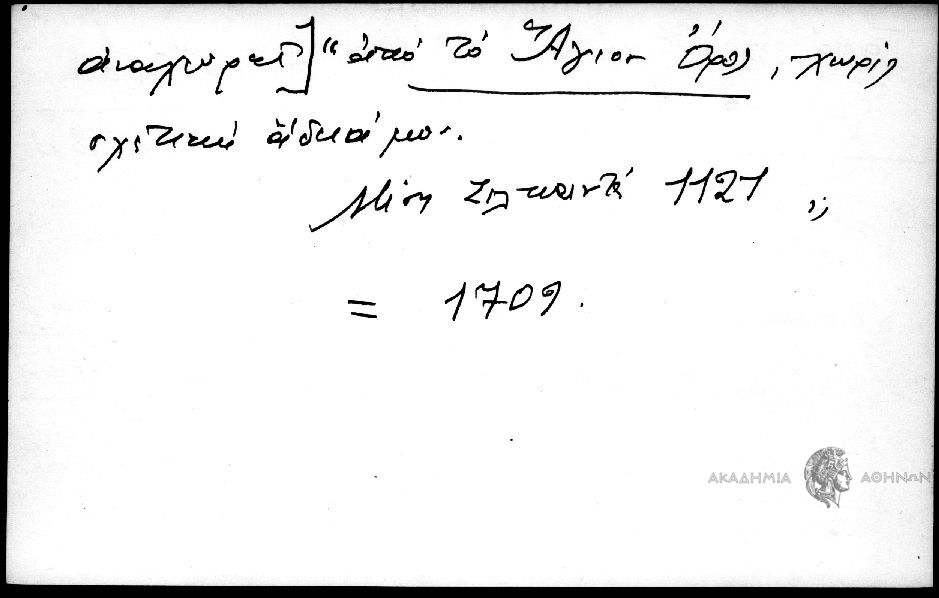 ἀναχωρεῖ] " ἀπὸ τὸ Ἅγιον Ὄρος, χωρὶς
σχετικὴ ἄδειά μου.
Μέση Ζιλκαντέ 1121 "
= 1709.
ΑΚΑΔΗΜΙΑ ΑΘΗΝΩΝ